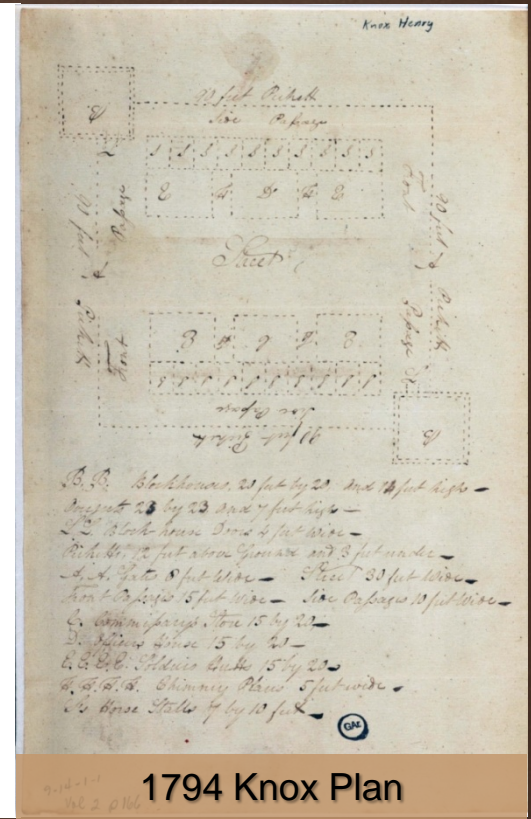 Knox Henry
90 feet Picketts
Side Passage
B
S S S S S S S S S S
E H D H E
90 feet Picketts
Front Passage
Street
Front Passage
90 feet Picketts
E H C H E
S S S S S S S S S S
Side Passage
90 feet Picketts
B
B. B. Blockhouses, 20 feet by 20 and 14 feet high
23 by 23 and 7 feet high
L. L. Block house Doors 4 feet wide
Picketts, 12 feet above Ground and 3 feet under
A. A. Gates 8 feet Wide Street 30 feet Wide
Front Passages 15 feet Wide Side Passages 10 feet Wide
C. Commissary's Store 15 by 20
D. Officers House 15 by 20
E. E. E. E. Soldiers Hutts 15 by 20
H. H. H. H. Chimney Places 5 feet wide
Horse Stalls 7 by 10 feet
GAZ
9-14-1-1
Vol 2 p166
1794 Knox Plan